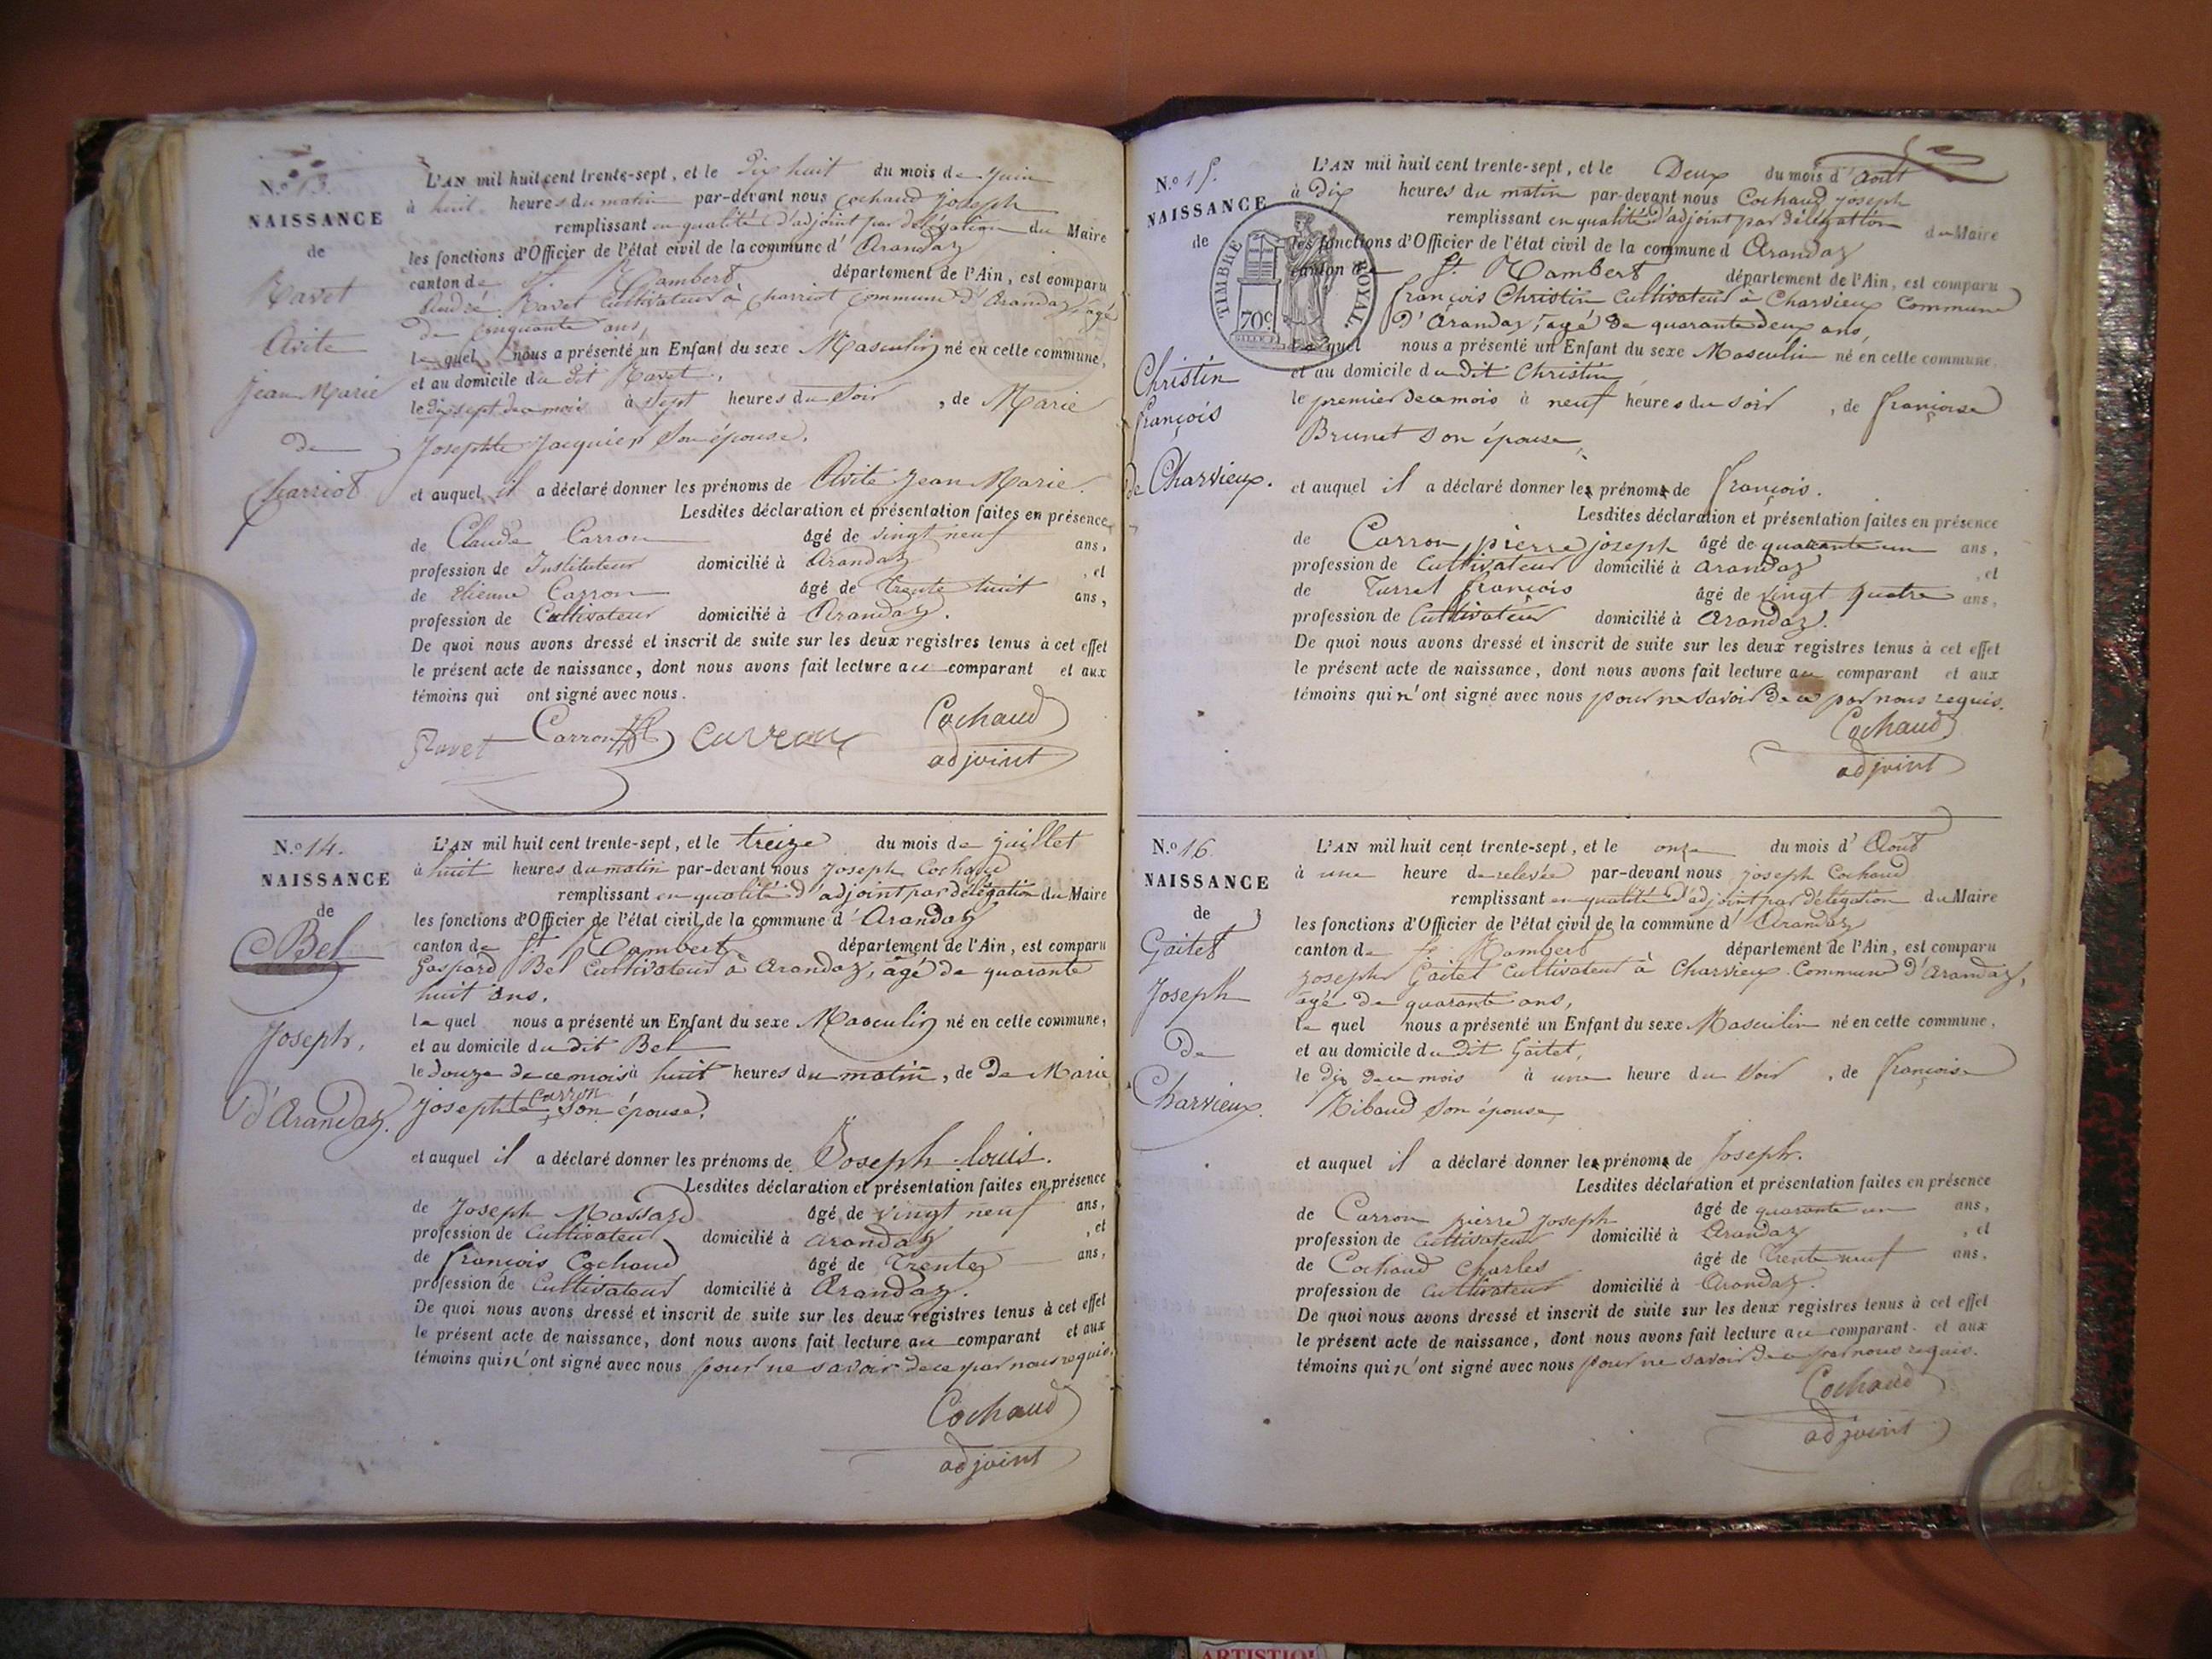 N.o 13.
NAISSANCE
de
Ravet
Avite
Jean Marie
de
Charriot
L'AN mil huit cent trente-sept, et le dix huit du mois de Juin
à huit heures du matin par-devant nous Cochaud Joseph
remplissant en qualité d'adjoint par délégation du Maire
les fonctions d'Officier de l'état civil de la commune d'Arandaz
canton de St. Rambert département de l'Ain, est comparu
André Ravet Cultivateur à Charriot Commune d'Arandaz, agé
de Cinquante ans,
le quel nous a présenté un Enfant du sexe Masculin né en cette commune,
et au domicile du dit Ravet,
le dix sept du mois à sept heures du soir, de Marie
Josephte Jacquier son épouse,
et auquel il a déclaré donner les prénoms de Avite Jean Marie.
Lesdites déclaration et présentation faites en présence
de Claude Carron âgé de vingt neuf ans,
profession de Instituteur domicilié à Arandaz, et
de Etienne Carron âgé de trente huit ans,
profession de Cultivateur domicilié à Arandaz.
De quoi nous avons dressé et inscrit de suite sur les deux registres tenus à cet effet
le présent acte de naissance, dont nous avons fait lecture au comparant et aux
témoins qui ont signé avec nous.
Ravet Carron Carron Cochaud
adjoint
N.o 14.
NAISSANCE
de
Bel
Joseph,
d'Arandaz.
L'AN mil huit cent trente-sept, et le treize du mois de juillet
à huit heures du matin par-devant nous Joseph Cochaud
remplissant en qualité d'adjoint par délégation du Maire
les fonctions d'Officier de l'état civil de la commune d'Arandaz
canton de St. Rambert département de l'Ain, est comparu
Gaspard Bel Cultivateur à Arandaz, âgé de quarante
huit ans.
le quel nous a présenté un Enfant du sexe Masculin né en cette commune,
et au domicile du dit Bel
le douze de ce mois à huit heures du matin, de De Marie
Josephte Carron son épouse,
et auquel il a déclaré donner les prénoms de Joseph Louis.
Lesdites déclaration et présentation faites en présence
de Joseph Massard âgé de vingt neuf ans,
profession de Cultivateur domicilié à Arandaz, et
de françois Cochaud âgé de Trente ans,
profession de Cultivateur domicilié à Arandaz.
De quoi nous avons dressé et inscrit de suite sur les deux registres tenus à cet effet
le présent acte de naissance, dont nous avons fait lecture au comparant et aux
témoins qui n'ont signé avec nous pour ne savoir de ce par nous requis.
Cochaud
adjoint
N.o 15.
NAISSANCE
de
TIMBRE ROYAL
70c
Christin
françois
de Charvieux.
L'AN mil huit cent trente-sept, et le Deux du mois d'Août
à Dix heures du matin par-devant nous Cochaud Joseph
remplissant en qualité d'adjoint par délégation du Maire
les fonctions d'Officier de l'état civil de la commune d Arandaz
canton de St. Rambert département de l'Ain, est comparu
françois Christin Cultivateur à Charvieux Commune
D'Arandaz, agé de quarante deux ans,
le quel nous a présenté un Enfant du sexe Masculin né en cette commune,
et au domicile du dit Christin,
le premier de ce mois à neuf heures du soir, de françoise
Brunet son épouse,
et auquel il a déclaré donner les prénoms de françois.
Lesdites déclaration et présentation faites en présence
de Carron pierre joseph âgé de quarante un ans,
profession de Cultivateur domicilié à Arandaz, et
de Turrel françois âgé de vingt quatre ans,
profession de Cultivateur domicilié à Arandaz.
De quoi nous avons dressé et inscrit de suite sur les deux registres tenus à cet effet
le présent acte de naissance, dont nous avons fait lecture au comparant et aux
témoins qui n'ont signé avec nous pour ne savoir de ce par nous requis.
Cochaud
adjoint
N.o 16
NAISSANCE
de
Gaitet
Joseph
De
Charvieux.
L'AN mil huit cent trente-sept, et le onze du mois d'Août
à une heure de relevée par-devant nous joseph Cochaud
remplissant en qualité d'adjoint par délégation du Maire
les fonctions d'Officier de l'état civil de la commune d'Arandaz
canton de St. Rambert département de l'Ain, est comparu
Joseph Gaitet Cultivateur à Charvieux Commune d'Arandaz,
agé de quarante ans,
le quel nous a présenté un Enfant du sexe Masculin né en cette commune,
et au domicile du dit Gaitet,
le dix de ce mois à une heure du soir, de françoise
Ribaud son épouse,
et auquel il a déclaré donner les prénoms de Joseph.
Lesdites déclaration et présentation faites en présence
de Carron pierre Joseph âgé de quarante un ans,
profession de Cultivateur domicilié à Arandaz, et
de Cochaud Charles âgé de trente neuf ans,
profession de Cultivateur domicilié à Arandaz.
De quoi nous avons dressé et inscrit de suite sur les deux registres tenus à cet effet
le présent acte de naissance, dont nous avons fait lecture au comparant et aux
témoins qui n'ont signé avec nous pour ne savoir de ce par nous requis.
Cochaud
adjoint